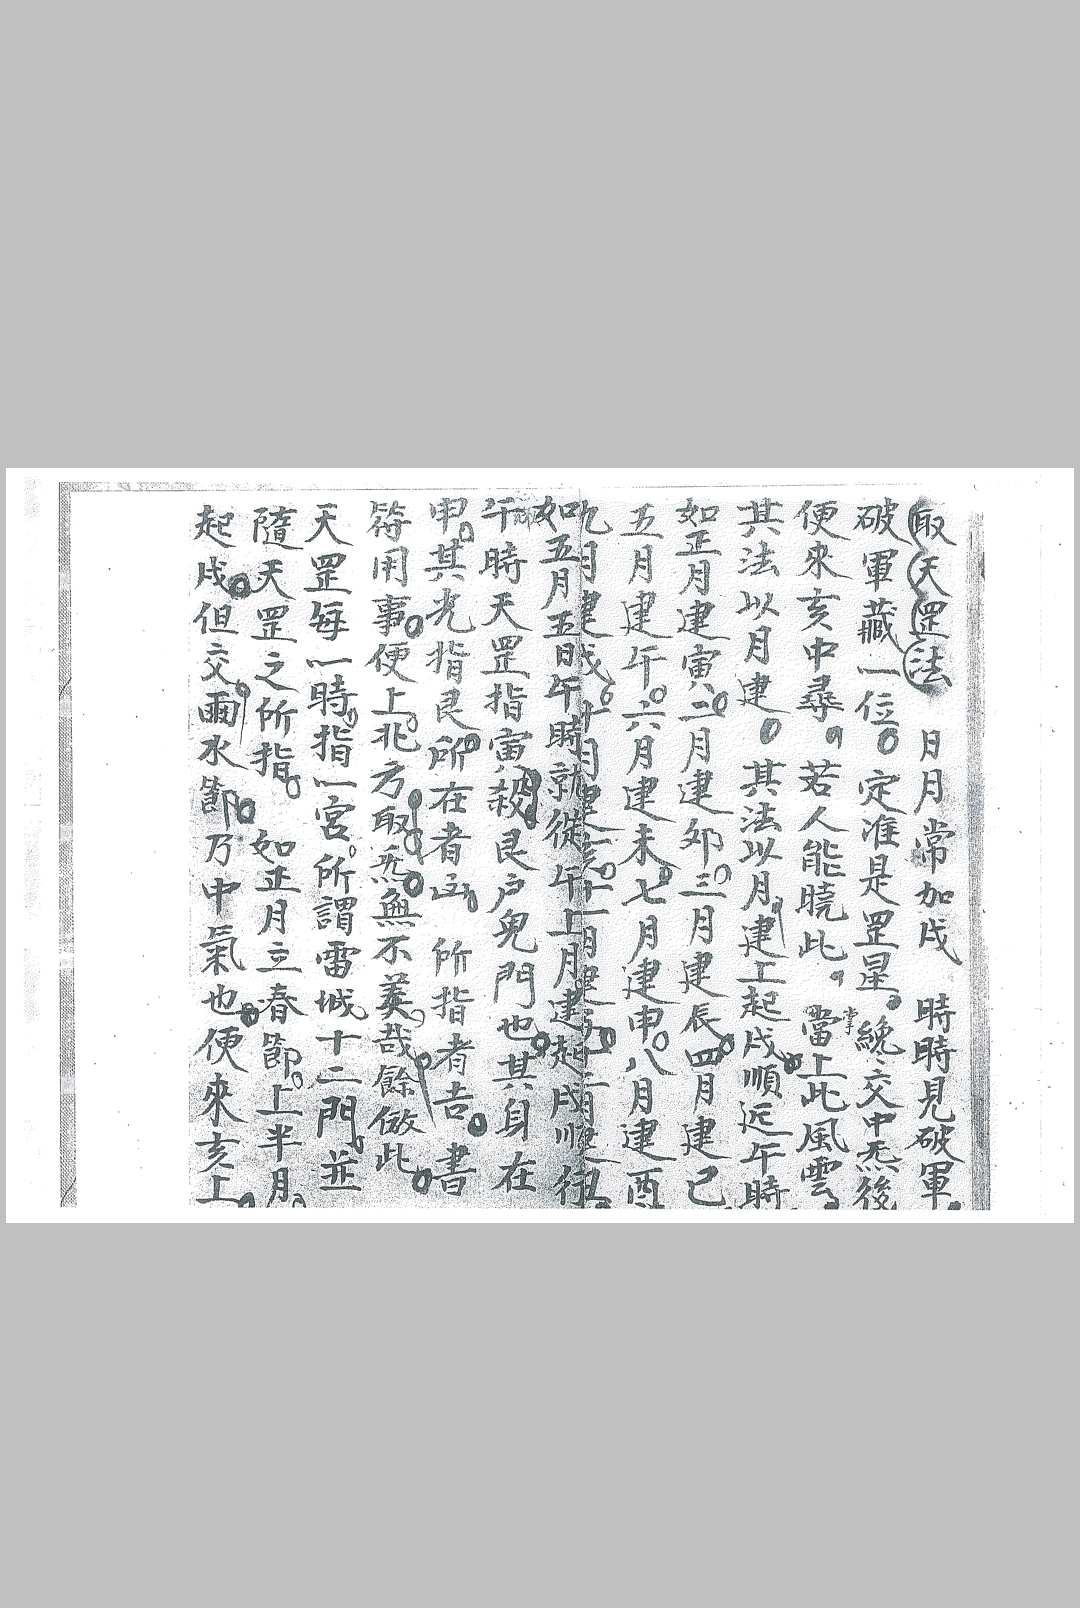 取天罡法　月月常加戌　時時見破軍
破軍藏一位。定准是罡星。纔交中炁後
便來亥中尋。若人能曉此。掌當上此風雲
其法以月建。其法以月建上起戌順近午時
如正月建寅。二月建卯。三月建辰。四月建巳
五月建午。六月建未。七月建申。八月建酉
九月建戌。十月建亥。十一月建。十二月建丑
如五月五日午時就從午上月建起戌順行
午時天罡指寅殺艮户鬼門也。其身在
申。其光指艮。所在者凶。所指者吉。書
符用事。便上北方取炁。無不美哉。餘倣此。
天罡每一時。指一宮。所謂雷城十二門。並
隨天罡之所指。如正月立春節。上半月。
起戌。但交雨水節。乃中氣也。便來亥上。